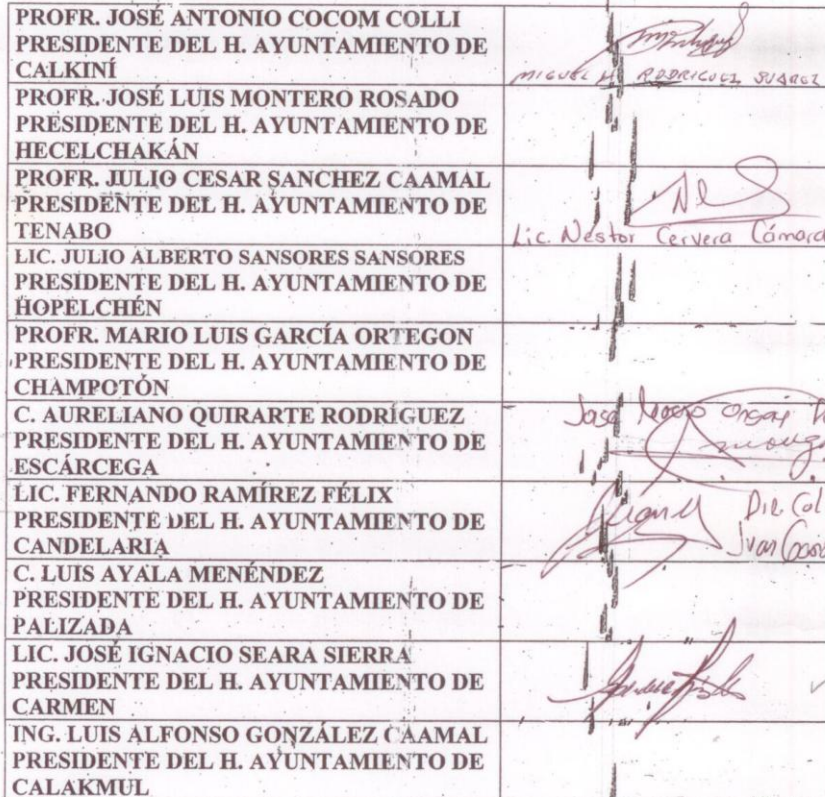 PROFR. JOSÉ ANTONIO COCOM COLLI
PRESIDENTE DEL H. AYUNTAMIENTO DE
CALKINÍ
MIGUEL H. RODRIGUEZ SUAREZ
PROFR. JOSÉ LUIS MONTERO ROSADO
PRESIDENTE DEL H. AYUNTAMIENTO DE
HECELCHAKÁN
PROFR. JULIO CESAR SANCHEZ CAAMAL
PRESIDENTE DEL H. AYUNTAMIENTO DE
TENABO
Lic. Néstor Cervera Cámara
LIC. JULIO ALBERTO SANSORES SANSORES
PRESIDENTE DEL H. AYUNTAMIENTO DE
HOPELCHÉN
PROFR. MARIO LUIS GARCÍA ORTEGON
PRESIDENTE DEL H. AYUNTAMIENTO DE
CHAMPOTÓN
C. AURELIANO QUIRARTE RODRÍGUEZ
PRESIDENTE DEL H. AYUNTAMIENTO DE
ESCÁRCEGA
José
LIC. FERNANDO RAMÍREZ FÉLIX
PRESIDENTE DEL H. AYUNTAMIENTO DE
CANDELARIA
C. LUIS AYALA MENÉNDEZ
PRESIDENTE DEL H. AYUNTAMIENTO DE
PALIZADA
LIC. JOSÉ IGNACIO SEARA SIERRA
PRESIDENTE DEL H. AYUNTAMIENTO DE
CARMEN
ING. LUIS ALFONSO GONZÁLEZ CAAMAL
PRESIDENTE DEL H. AYUNTAMIENTO DE
CALAKMUL